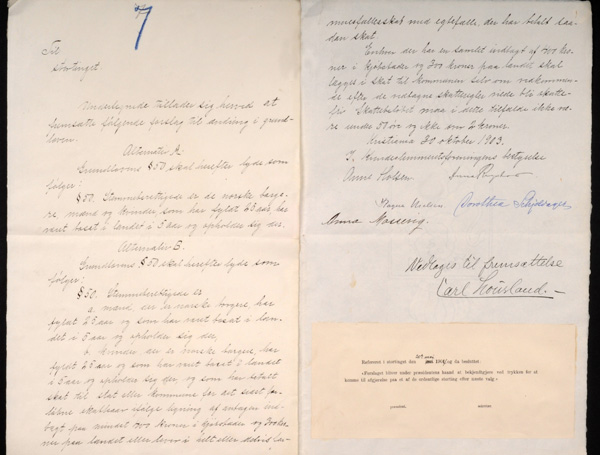 7
Til
stortinget.
Undertegnede tillader sig herved at
fremsætte følgende forslag til ændring i grund-
loven.
Alternativ A.
Grundlovens § 50 skal herefter lyde som
følger:
§ 50. Stemmeberettigede er de norske borge-
re, mænd og kvinder, som har fyldt 25 aar, har
været bosat i landet i 5 aar og opholder sig der.
Alternativ B.
Grundlovens § 50 skal herefter lyde som
følger:
§ 50. Stemmeberettigede er
a. mænd, der er norske borgere, har
fyldt 25 aar og som har været bosat i lan-
det i 5 aar og opholder sig der,
b. kvinder, der er norske borgere, har
fyldt 25 aar og som har været bosat i landet
i 5 aar og opholder sig der, og som har betalt
skat til stat eller kommune for det sidst for-
løbne skatteaar ifølge ligning af antagen ind-
tægt paa mindst 400 kroner i kjøbstæder og 300 kro-
ner paa landet eller lever i helt eller delvist for-
muesfællesskab med egtefælle, der har betalt saa-
dan skat.
Enhver der har en samlet indtægt af 400 kro-
ner i kjøbstæder og 300 kroner paa landet skal
lægges i skat til kommunen selv om vedkommen-
de efter de vedtagne skatteregler vilde bli skatte-
fri. Skattebeløbet maa i dette tilfælde ikke væ-
re under 50 øre og ikke over 2 kroner.
Kristiania 30 oktober 1903.
I Kvindestemmeretsforeningens bestyrelse
Anne Holsen
Dorothea Schjoldager
Anna
Vedtages til fremsættelse
Carl
Referert i stortinget den og da besluttet:
«Forslaget bliver under præsidentens haand at bekjendtgjøre ved trykken for at
komme til afgjørelse paa et af de ordentlige storting efter næste valg.»
præsident.
sekretær.